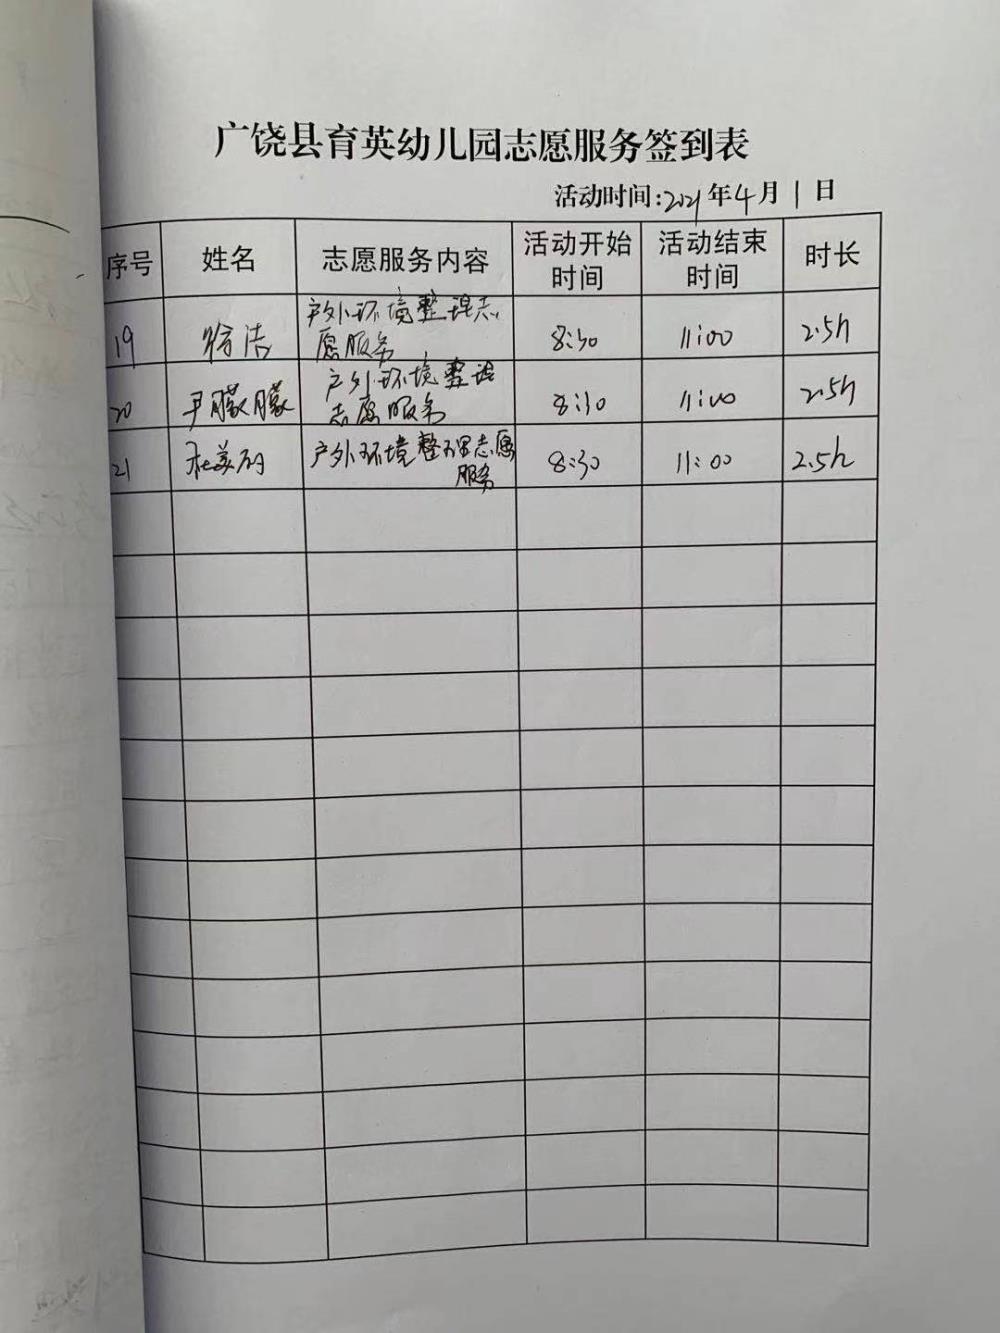 广饶县育英幼儿园志愿服务签到表
活动时间:2021年4月1日
序号 姓名 志愿服务内容 活动开始时间 活动结束时间 时长
19 徐洁 户外环境整理志愿服务 8:30 11:00 2.5h
20 尹朦朦 户外环境整理志愿服务 8:30 11:00 2.5h
21 杜美 户外环境整理志愿服务 8:30 11:00 2.5h